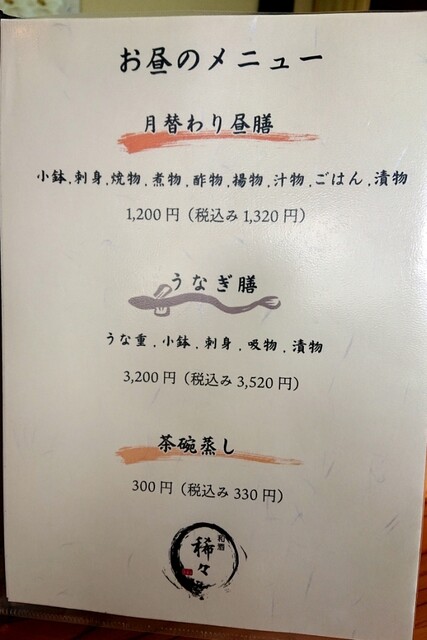 お昼のメニュー
月替わり昼膳
小鉢.刺身.焼物.煮物.酢物.揚物.汁物.ごはん.漬物
1,200円（税込み1,320円）
うなぎ膳
うな重.小鉢.刺身.吸物.漬物
3,200円（税込み3,520円）
茶碗蒸し
300円（税込み330円）
稀々